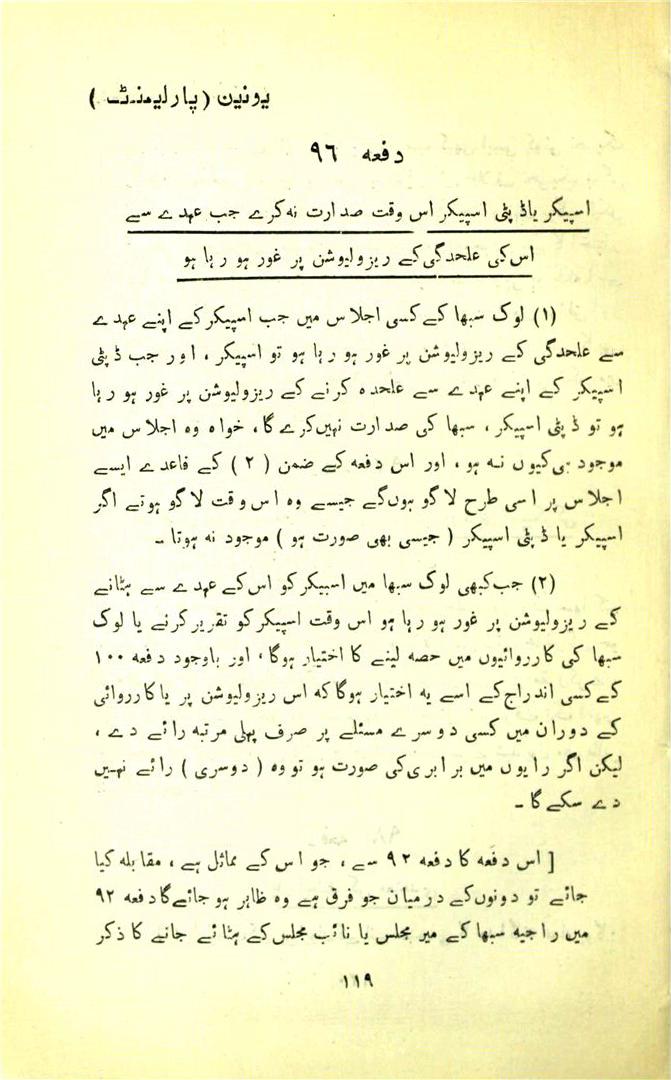 یونین (پارلیمنٹ)
دفعہ ۹۶
اسپیکر یا ڈپٹی اسپیکر اس وقت صدارت نہ کرے جب عہدے سے
اس کی علحدگی کے ریزولیوشن پر غور ہو رہا ہو
(۱) لوک سبھا کے کسی اجلاس میں جب اسپیکر کے اپنے عہدے
سے علحدگی کے ریزولیوشن پر غور ہو رہا ہو تو اسپیکر ، اور جب ڈپٹی
اسپیکر کے اپنے عہدے سے علحدہ کرنے کے ریزولیوشن پر غور ہو رہا
ہو تو ڈپٹی اسپیکر ، سبھا کی صدارت نہیں کرے گا ، خواہ وہ اجلاس میں
موجود ہی کیوں نہ ہو ، اور اس دفعہ کے ضمن (۲) کے قاعدے ایسے
اجلاس پر اسی طرح لاگو ہوں گے جیسے وہ اس وقت لاگو ہوتے اگر
اسپیکر یا ڈپٹی اسپیکر ( جیسی بھی صورت ہو ) موجود نہ ہوتا ۔
(۲) جب کبھی لوک سبھا میں اسپیکر کو اس کے عہدے سے ہٹانے
کے ریزولیوشن پر غور ہو رہا ہو اس وقت اسپیکر کو تقریر کرنے یا لوک
سبھا کی کارروائیوں میں حصہ لینے کا اختیار ہوگا ، اور باوجود دفعہ ۱۰۰
کے کسی اندراج کے اسے یہ اختیار ہوگا کہ اس ریزولیوشن پر یا کارروائی
کے دوران میں کسی دوسرے مسئلے پر صرف پہلی مرتبہ رائے دے ،
لیکن اگر رایوں میں برابری کی صورت ہو تو وہ ( دوسری ) رائے نہیں
دے سکے گا ۔
[ اس دفعہ کا دفعہ ۹۲ سے ، جو اس کے مماثل ہے ، مقابلہ کیا
جائے تو دونوں کے درمیان جو فرق ہے وہ ظاہر ہو جائے گا دفعہ ۹۲
میں راجیہ سبھا کے میر مجلس یا نائب مجلس کے ہٹائے جانے کا ذکر
۱۱۹